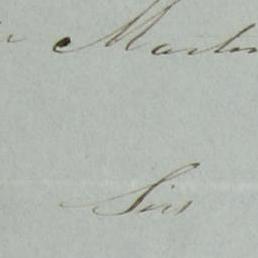 Martin
Sir